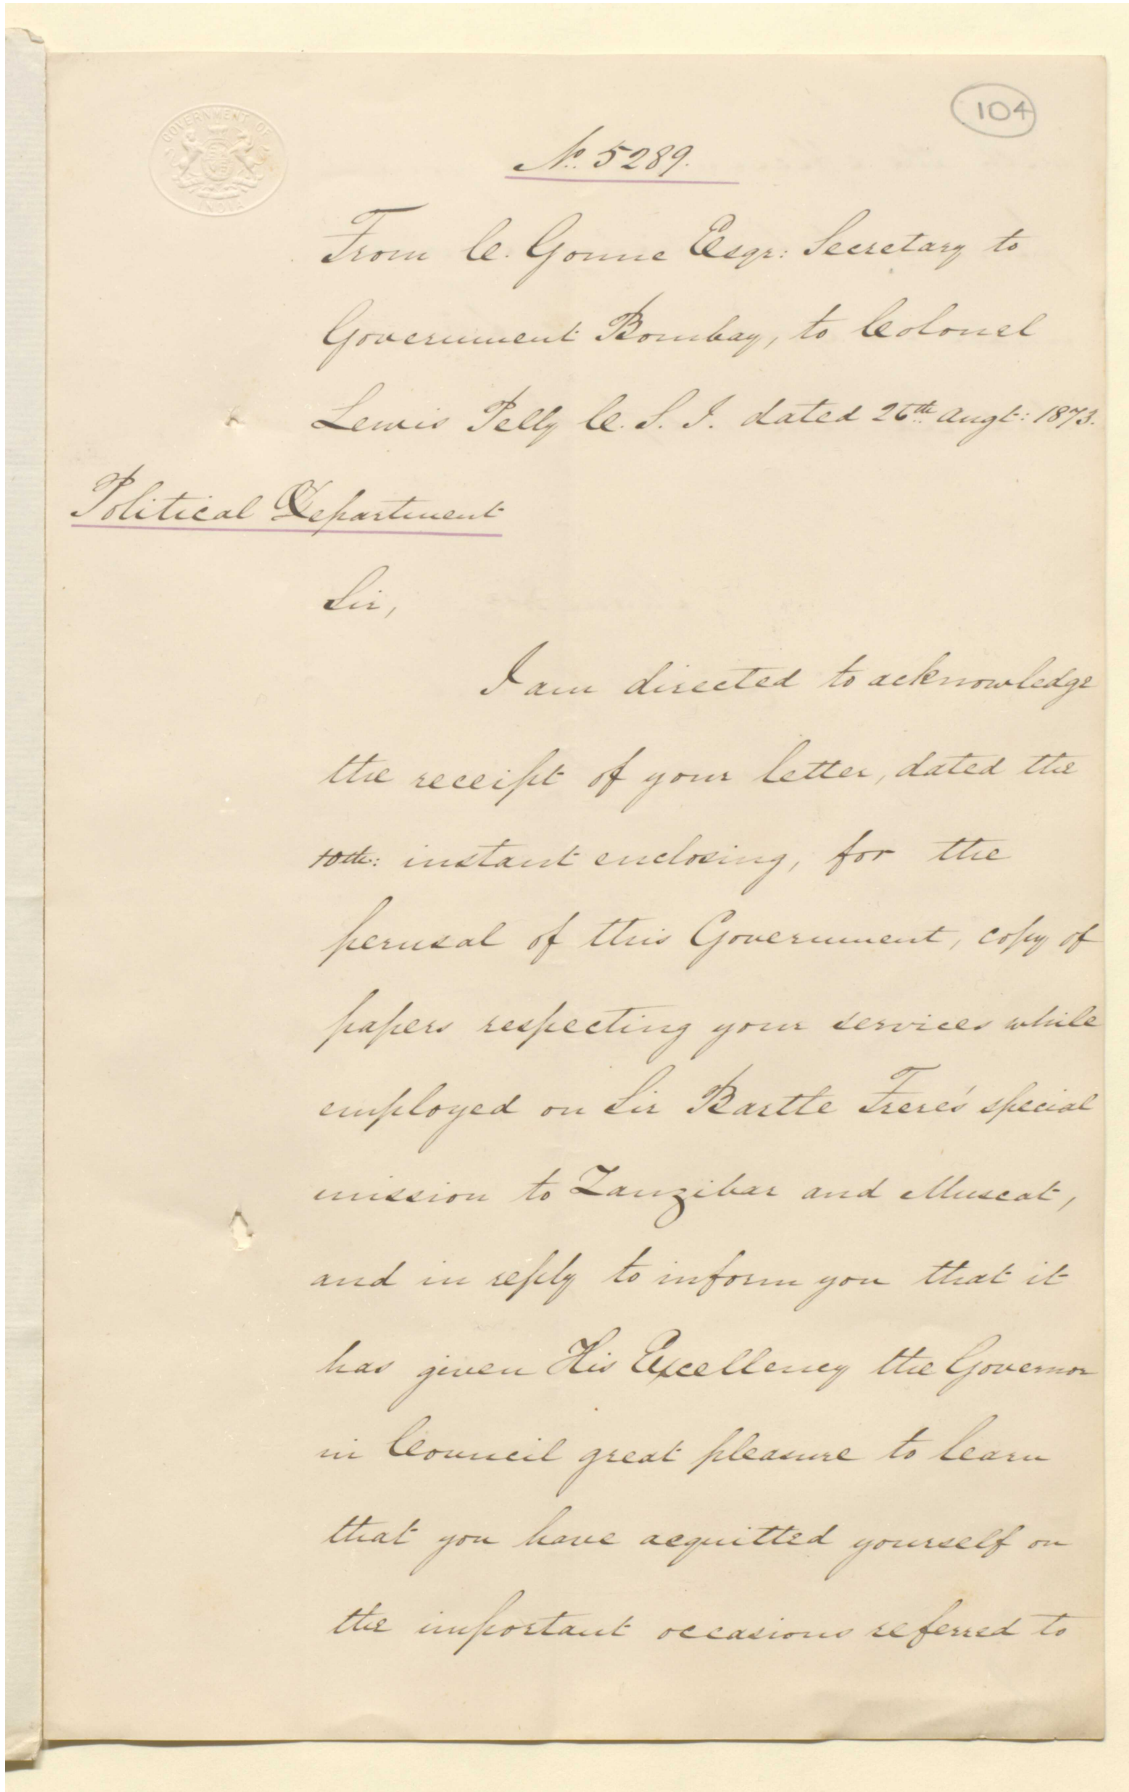 104
GOVERNMENT OF
INDIA
No. 5289.
From C. Gonne Esqr: Secretary to
Government Bombay, to Colonel
Lewis Pelly C. S. I. dated 26th Augt: 1873.
Political Department
Sir,
I am directed to acknowledge
the receipt of your letter, dated the
10th: instant enclosing, for the
perusal of this Government, copy of
papers respecting your services while
employed on Sir Bartle Frere's special
mission to Zanzibar and Muscat,
and in reply to inform you that it
has given His Excellency the Governor
in Council great pleasure to learn
that you have acquitted yourself on
the important occasions referred to